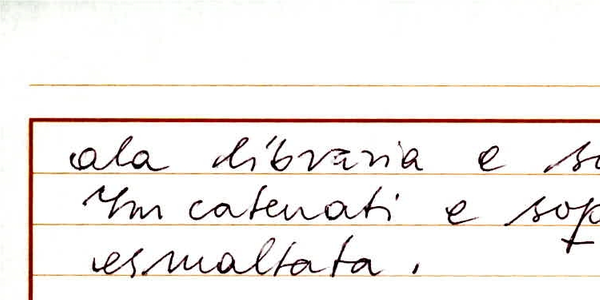 ala libraria e
Im catenati e
esmaltata.